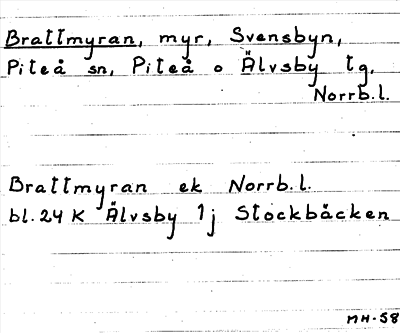 Brattmyran, myr, Svensbyn,
Piteå sn, Piteå o Älvsby tg,
Norrb.l.
Brattmyran ek Norrb.l.
bl. 24 K Älvsby 1j Stockbäcken
MH-58